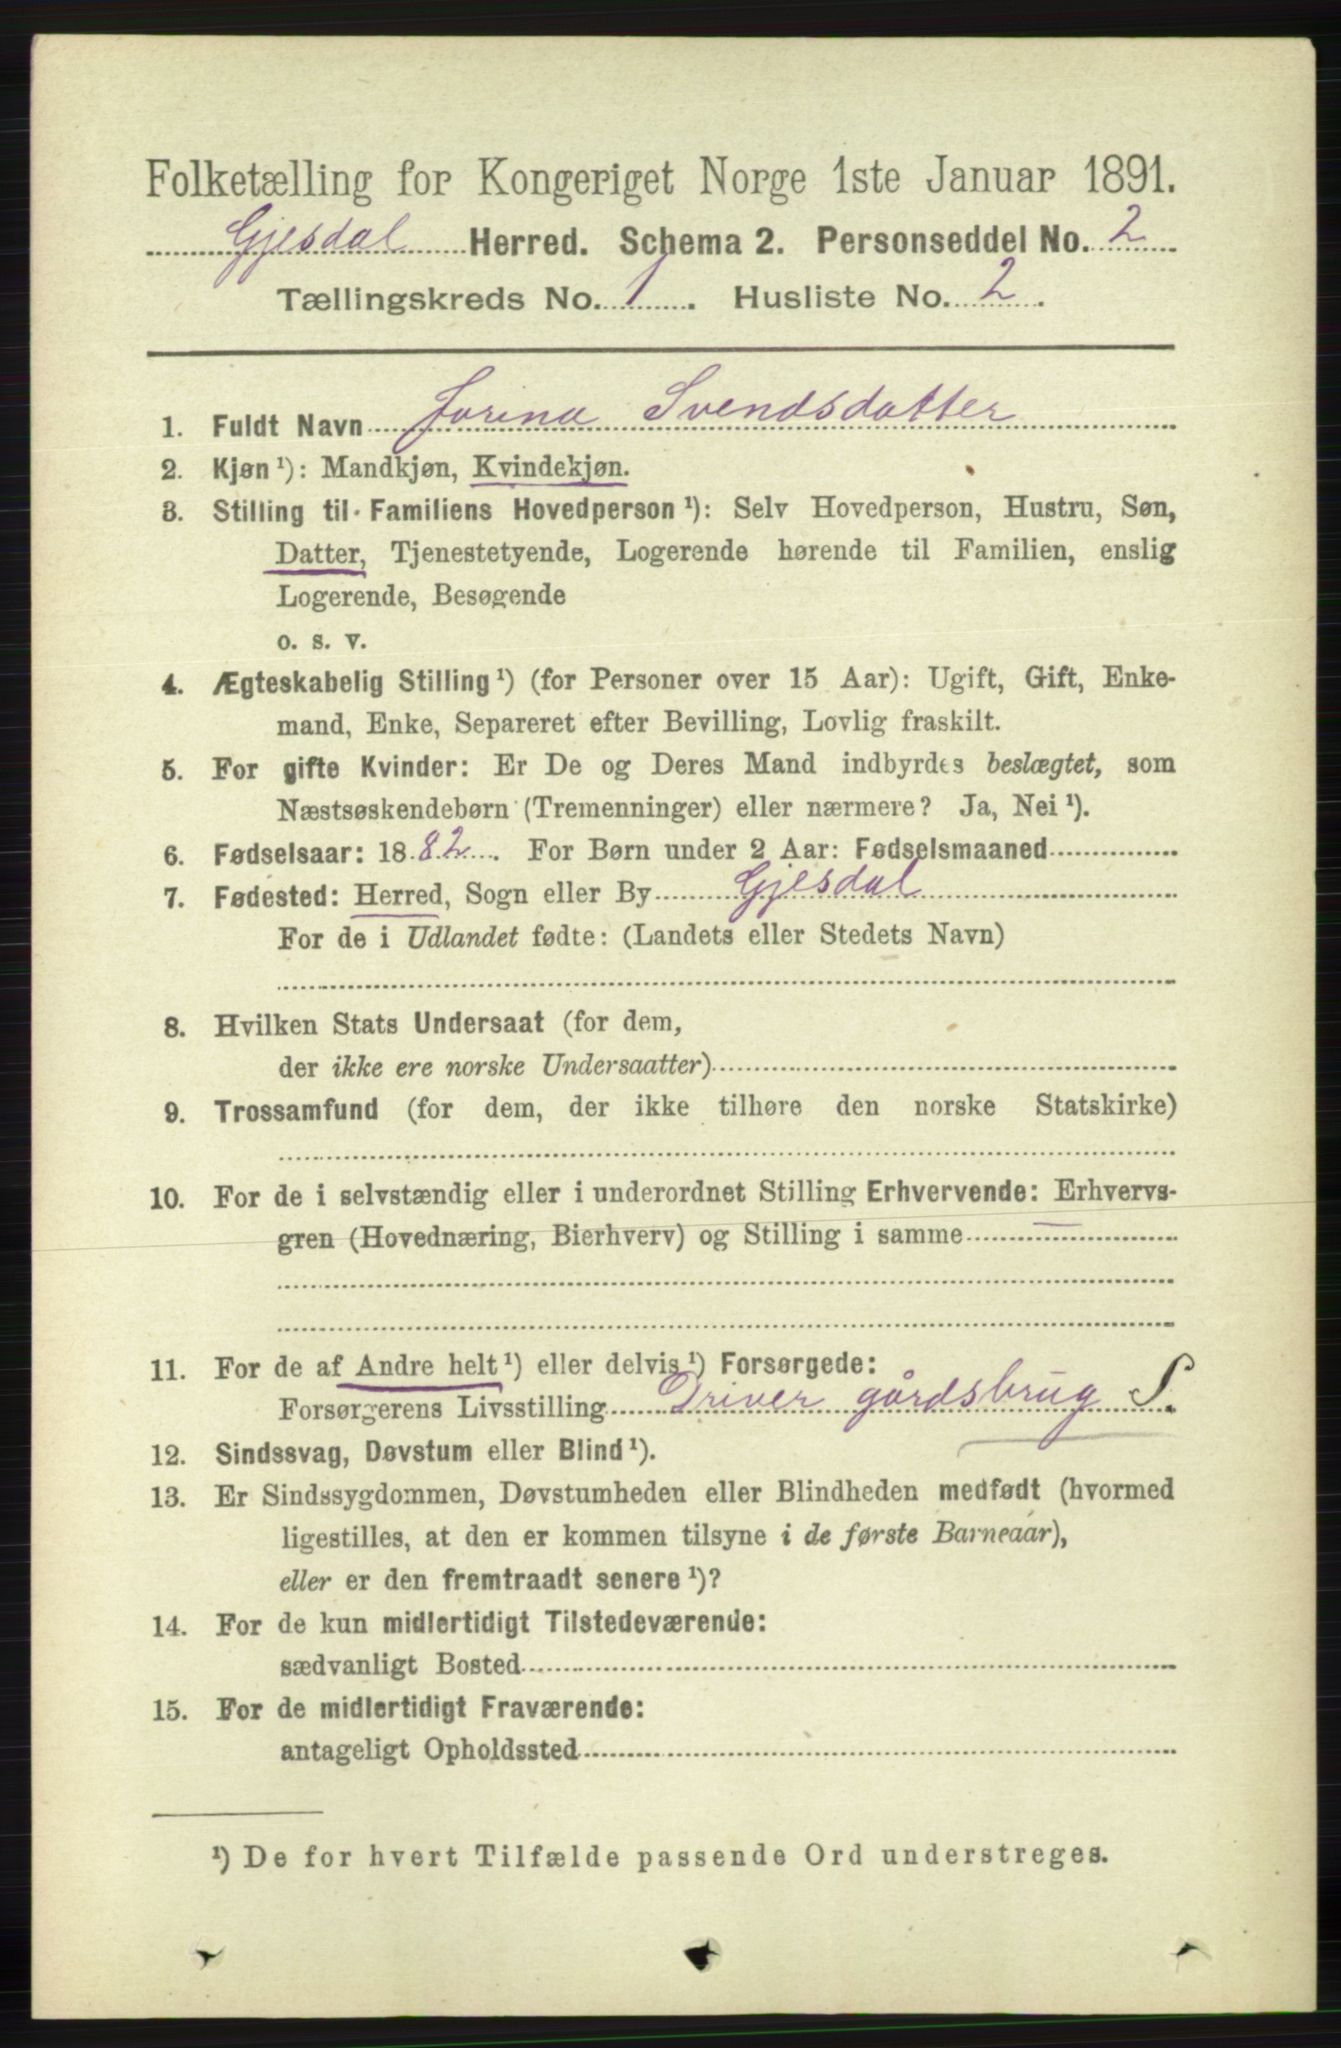 Folketælling for Kongeriget Norge 1ste Januar 1891.
Gjesdal Herred. Schema 2. Personseddel No. 2
Tællingskreds No. 1. Husliste No. 2.
1. Fuldt Navn Jorina Svendsdatter
2. Kjøn ¹): Mandkjøn, Kvindekjøn.
3. Stilling til Familiens Hovedperson ¹): Selv Hovedperson, Hustru, Søn,
Datter, Tjenestetyende, Logerende hørende til Familien, enslig
Logerende, Besøgende
o. s. v.
4. Ægteskabelig Stilling ¹) (for Personer over 15 Aar): Ugift, Gift, Enke-
mand, Enke, Separeret efter Bevilling, Lovlig fraskilt.
5. For gifte Kvinder: Er De og Deres Mand indbyrdes beslægtet, som
Næstsøskendebørn (Tremenninger) eller nærmere? Ja, Nei ¹).
6. Fødselsaar: 1882. For Børn under 2 Aar: Fødselsmaaned
7. Fødested: Herred, Sogn eller By Gjesdal
For de i Udlandet fødte: (Landets eller Stedets Navn)
8. Hvilken Stats Undersaat (for dem,
der ikke ere norske Undersaatter)
9. Trossamfund (for dem, der ikke tilhøre den norske Statskirke)
10. For de i selvstændig eller i underordnet Stilling Erhvervende: Erhvervs-
gren (Hovednæring, Bierhverv) og Stilling i samme —
11. For de af Andre helt ¹) eller delvis ¹) Forsørgede:
Forsørgerens Livsstilling Driver gårdsbrug S.
12. Sindssvag, Døvstum eller Blind ¹).
13. Er Sindssygdommen, Døvstumheden eller Blindheden medfødt (hvormed
ligestilles, at den er kommen tilsyne i de første Barneaar),
eller er den fremtraadt senere ¹)?
14. For de kun midlertidigt Tilstedeværende:
sædvanligt Bosted
15. For de midlertidigt Fraværende:
antageligt Opholdssted
¹) De for hvert Tilfælde passende Ord understreges.